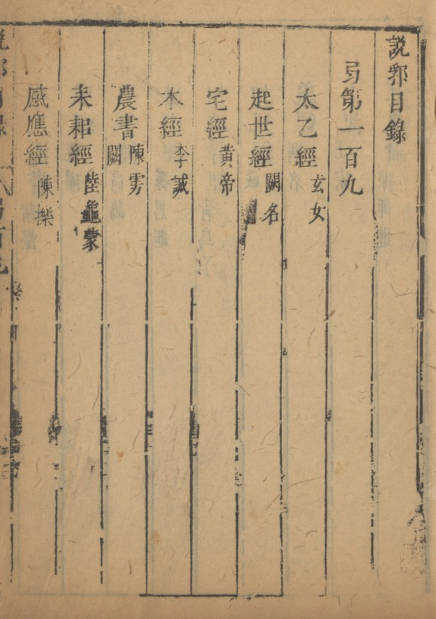 説郛目錄
弓第一百九
太乙經 玄女
起世經 闕名
宅經 黄帝
木經 李誡
農書 陳旉 闕
耒耜經 陸龜蒙
感應經 陳櫟